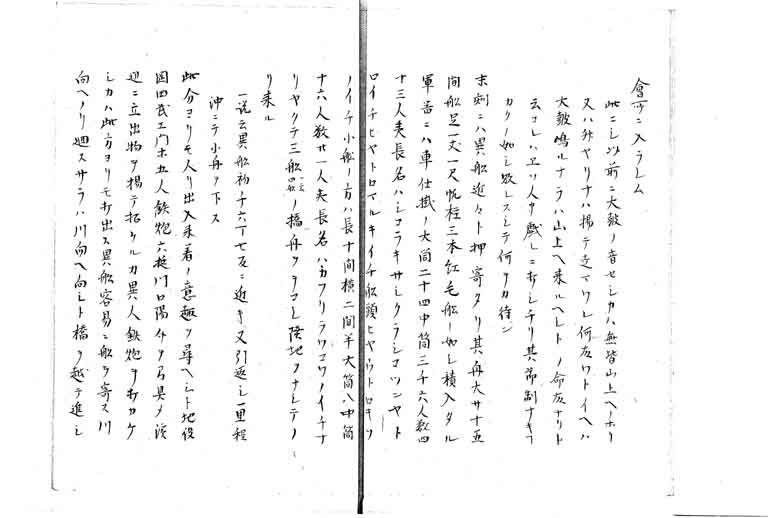 會所ニ入ラレム
此ニシ以前ニ大皷ノ音セシカハ無皆山上ヘ
又ハ外ヤリナハ揚テ迄テワレ何友ワトイヘハ
大皷鳴ルナラハ山上ヘ来ルヘシトノ命友ナリト
云コレハエソ人ヤ戯レニ打シチリ其節制ナキ
カクノ如シ敗レスシテ何ヲカ待ン
末刻ニハ異舩近々ト押寄タリ其舟大サ十五
間舩足一丈一尺帆柱三本紅毛舩ノ如シ積入タル
軍器ニハ車仕掛ノ大筒二十四中筒三千六人数四
十三人夫長名ハシコラキサンクランコツンヤト
ロイチヒヤトロマルキイチ舩頭ヒヤウトロキソ
ノイチ小舩ノ方ハ長十間横二間半大筒八中筒
十六人数廿一人夫長名ハカフリラワコワノイチナ
リヤクテ三舩ノ橋舟ヲヲコシ陸地ヲナシテノ
リ来ル
一説云異舩初チ六丁七反ニ近キ又引返シ一里程
沖ニテ小舟ヲ下ス
此分ヨリモ人リ出入来着ノ意趣ヲ尋ヘシト地役
園田武エ門ホ五人鉄炮六挺川口陽ケヲ弓具メ浜
辺ニ立出物ヲ揚テ招ケルカ異人鉄炮ヲ打カケ
シカハ此方ヨリモ打出ス異舩容易ニ舩ヲ寄ス川
向ヘノリ廻スサラハ川向ヘ向ント橋ヲ越テ進シ